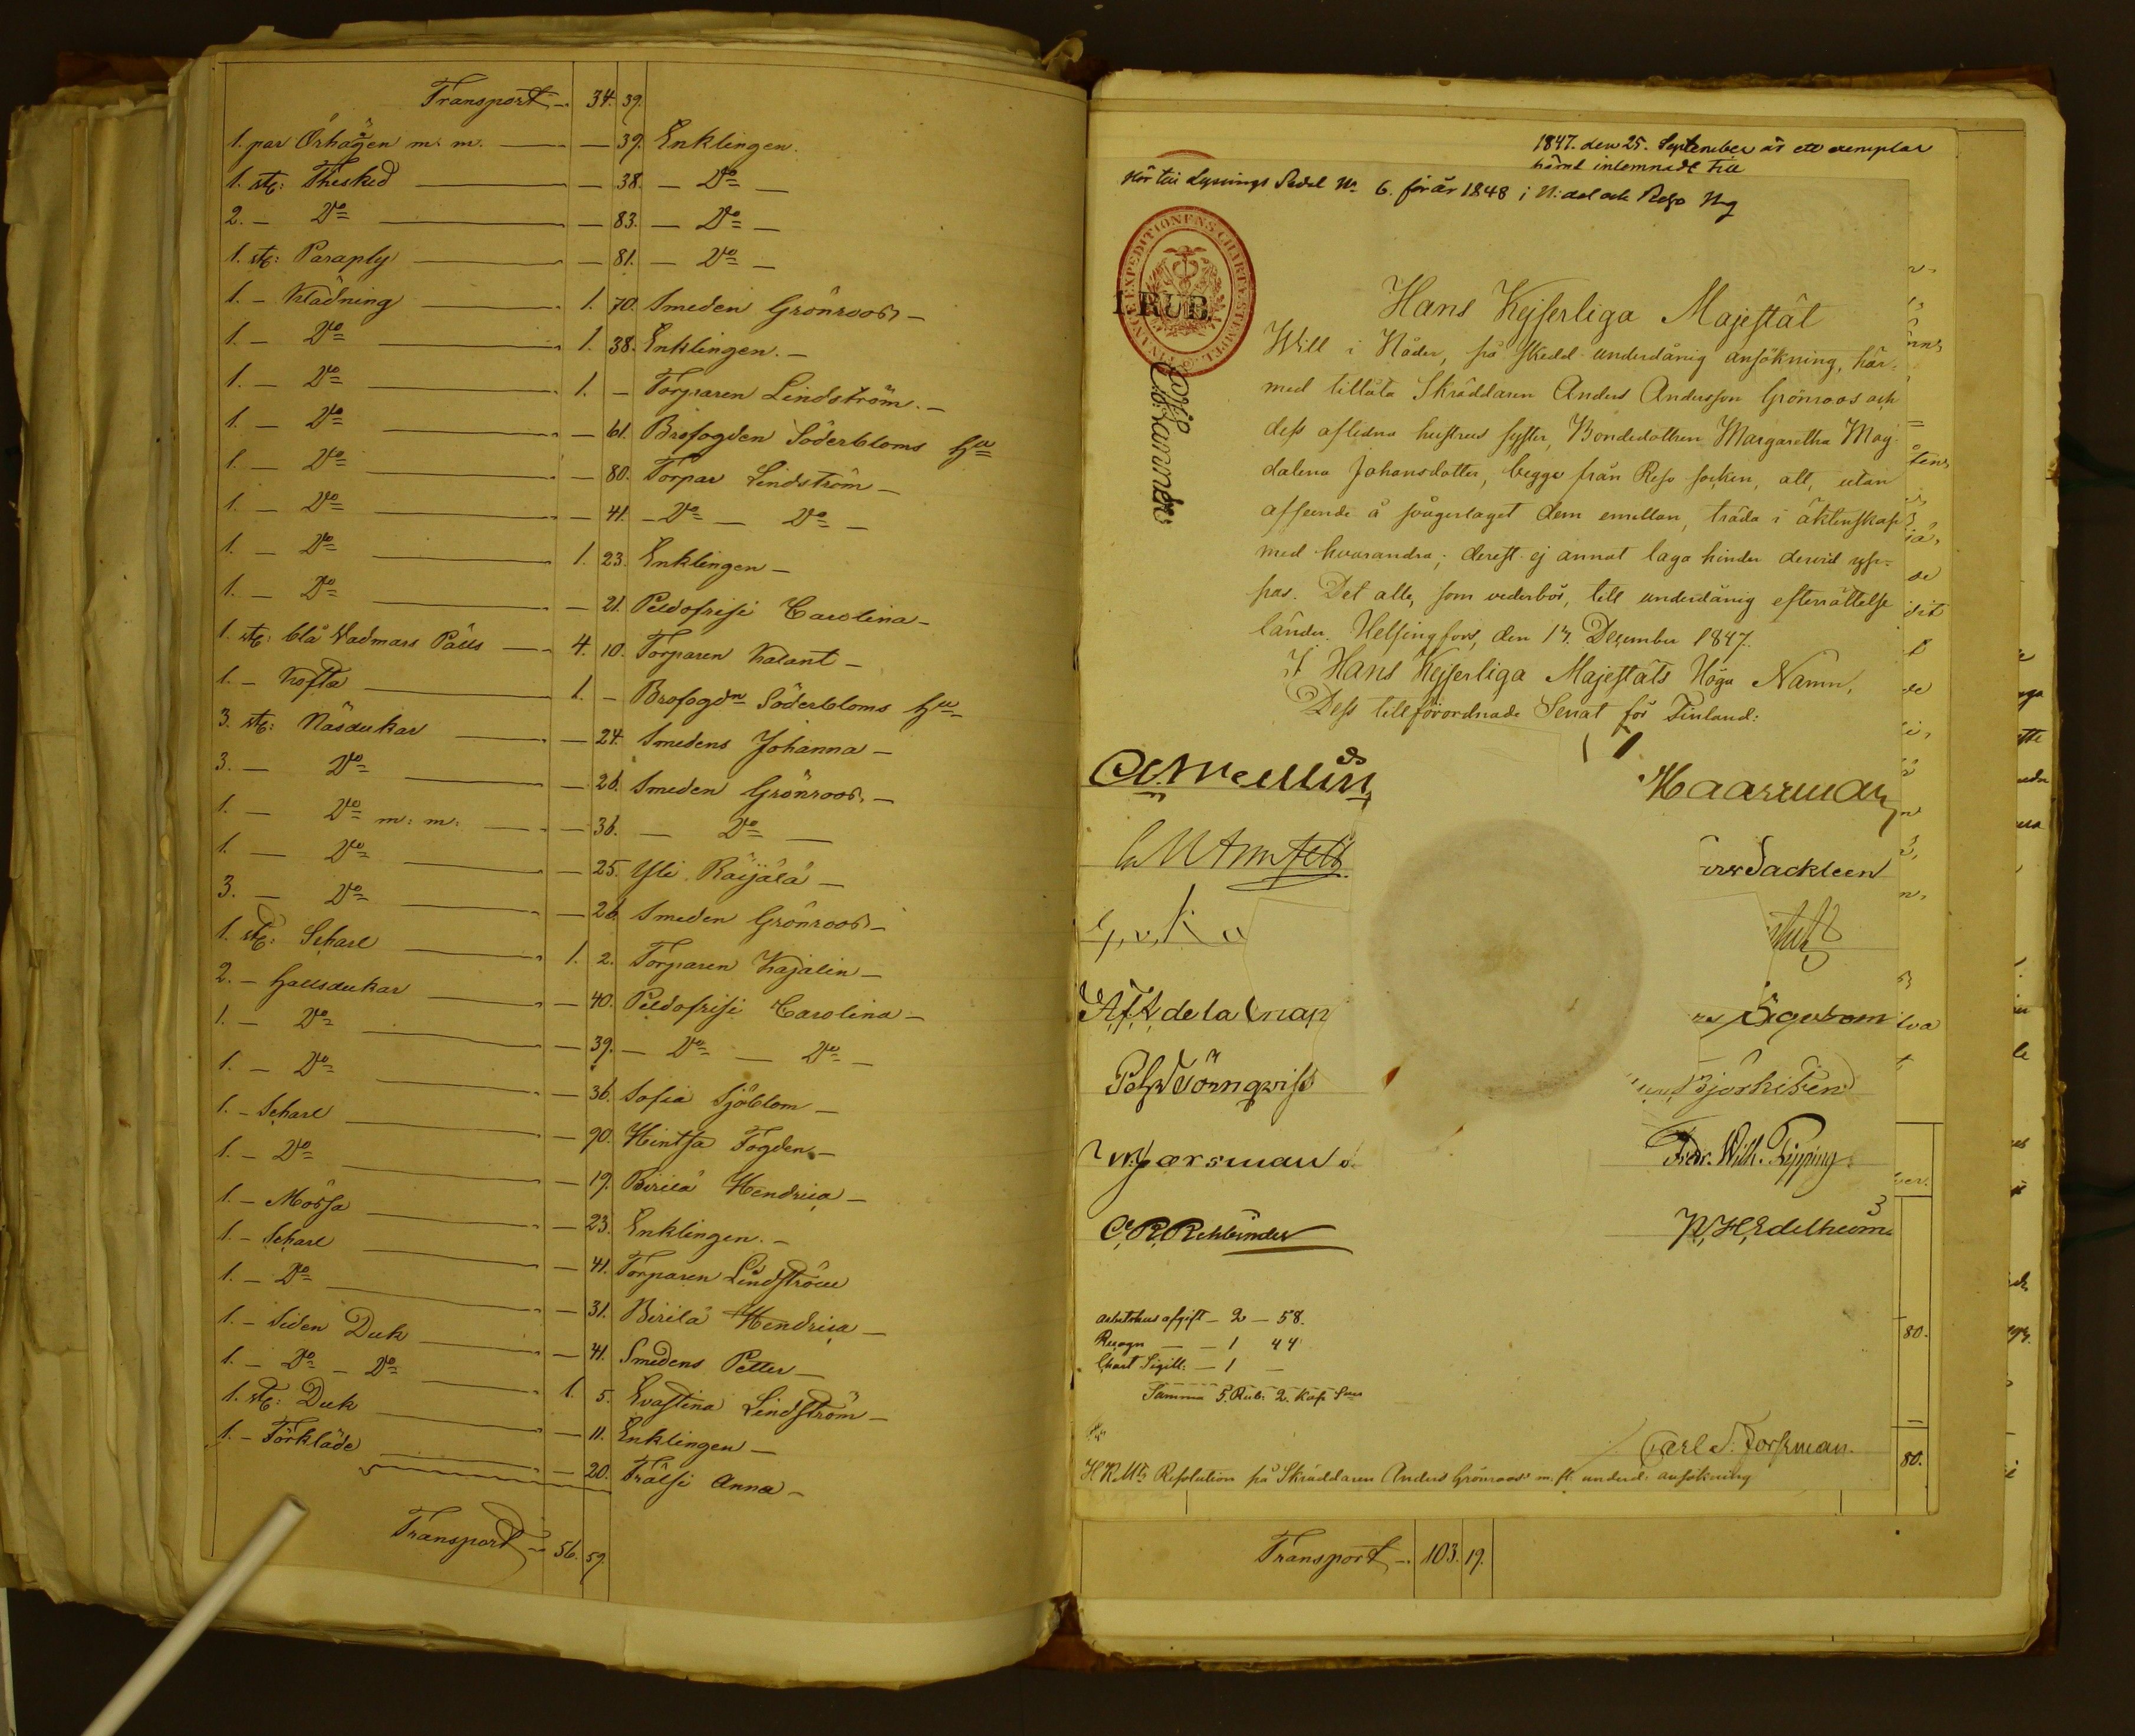 Transport 34. 39.
1. par Örhägen m. m. — 39. Enklingen.
1. st: Thesked — 38. — Do —
2. — Do — 83. — Do —
1. st: Paraply — 81. — Do —
1. — Klädning 1. 70. Smeden Grönroos —
1. — Do 1. 38. Enklingen. —
1. — Do 1. — Torparen Lindström. —
1. — Do — 61. Brofogden Söderbloms
1. — Do — 80. Torpar Lindström —
1. — Do — 41. — Do — Do —
1. — Do 1. 23. Enklingen —
1. — Do — 21. Peldofrisi Carolina —
1. st: blå Vadmars 4. 10. Torparen Kalant —
1. — Kofta 1. — Brofogdn Söderbloms
3. st: Näsdukar — 24. Smedens Johanna —
3. — Do — 26. Smeden Grönroos. —
1. — Do m: m: — 36. — Do —
1. — Do — 25. Yli Räijälä —
3. — Do — 26. Smeden Grönroos —
1. st: Scharl 1. 2. Torparen Kajalin —
2. — Halsdukar — 40. Peldofrisi Carolina —
1. — Do — 39. — Do — Do —
1. — Do — 36. Sofia Sjöblom —
1. — Scharl — 90. Hintsa Fogden —
1. — Do — 19. Birilä Hendrica —
1. — Mössa — 23. Enklingen. —
1. — Scharl — 41. Torparen Lindström
1. — Do — 31. Birilä Hendrica —
1. — Siden Duk — 41. Smedens Petter —
1. — Do — Do 1. 5. Evastina Lindström —
1. st: Duk — 11. Enklingen —
1. — Förkläde — 20. Trälsi Anna —
Transport 56. 59.
1847. den 25. September är ett exemplar
härat inlemnadt till
Hör till Lysnings Sedel No 6. för år 1848 i
FINANCE EXPEDITIONENS CHARTÆ STEMPEL
1. RUB.
Hans Kejserliga Majestät
Will i Nåder, på skedd underdånig ansökning, här-
med tillåta Skräddaren Anders Andersson Grönroos och
dess aflidna hustrus syster, Bondedottren Margaretha Mag-
dalena Johansdotter, begge från Reso socken, att, utan
afseende å svågerlaget dem emellan, träda i äktenskap
med hvarandra; derest ej annat laga hinder dervid yp-
pas. Det alle, som vederbör, till underdånig efterrättelse
länder. Helsingfors, den 13. December 1847.
I Hans Kejserliga Majestäts Höga Namn,
Dess tillförordnade Senat för Finland:
CMellin
Haartman
Sackleen
de la Chap
Törnqvist
Björksten
Fredr. Wilh. Pipping
C. R. Rehbinder
P. H. Edelheim
arbetshus afgift — 2 — 58.
Recogn — 1 44
Chart Sigill: — 1 —
Summa 5. Rub: 2. Kop. Sr
80.
Carl Forsman.
80.
H K Mts Resolution på Skräddaren Anders Grönroos m. fl. underd: ansökning
Transport 103. 19.